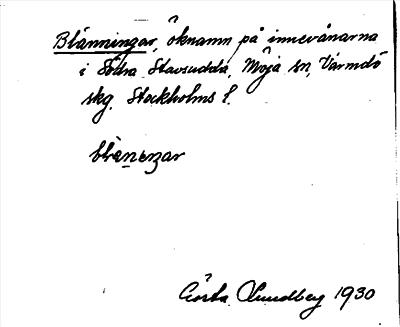 Blänningar, öknamn på innevånarna
i Södra Stavsudda, Möja sn, Värmdö
skg. Stockholms l.
Gösta Lundberg 1930